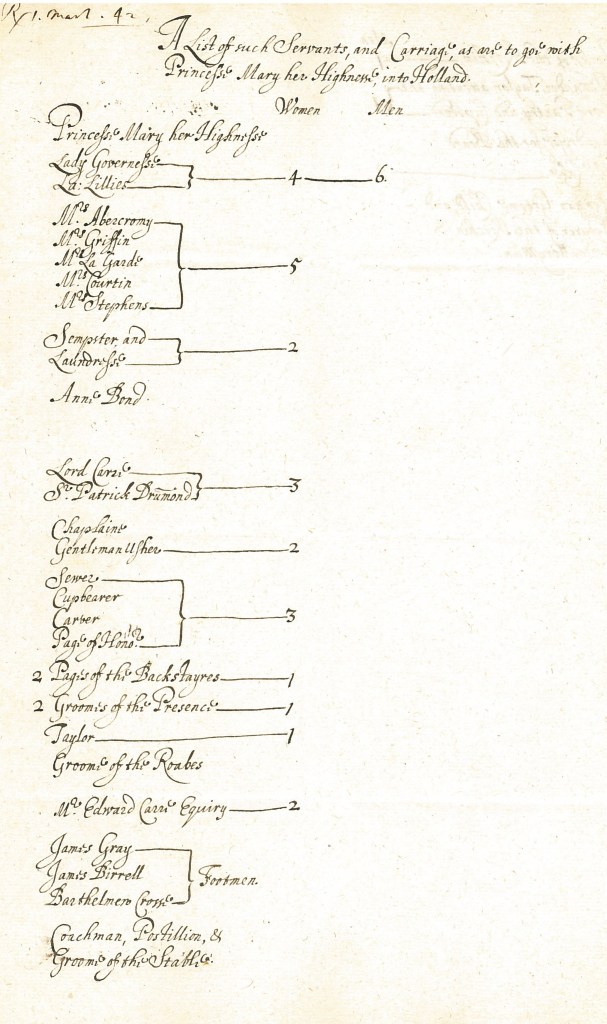 R/ 1. mart. 42,
A List of such Servants, and Carriage, as are to goe with
Princesse Mary her Highnesse, into Holland.
Women Men
Princesse Mary her Highnesse
Lady Governesse
La: Lillies 4 6.
Mrs. Abercromy
Mrs. Griffin
Mrs La Garde 5
Mrs. Courtin
Mrs Stephens
Sempster, and
Laundresse 2
Anne Bond.
Lord Carre
Sr. Patrick Drum̄ond 3
Chaplaine
Gentleman Usher 2
Sewer
Cupbearer
Carver 3
Page of Honor.
2 Pages of the Backstayres 1
2 Groomes of the Presence 1
Taylor 1
Groome of the Roabes
Mr. Edward Carre Equiry 2
James Gray
James Birrell Footmen.
Barthelmew Crosse
Coachman, Postillion, &
Groome of the Stable.